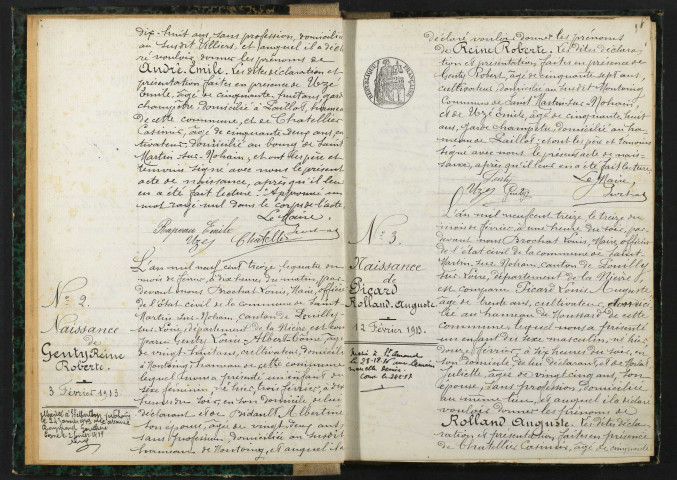 dix-huit ans, sans profession, domiciliée
au susdit Villiers. et auquel il a décla
ré vouloir donner les prénoms de
André Emile. Les dites déclaration et
présentation faites en présence de Uzé
Emile, âgé de cinquante huit ans, garde
champêtre domicilié à Paillot, hameau
de cette commune, et de Chatellier
Casimir, âgé de cinquante deux ans, cul
tivateur, domicilié au bourg de Saint
Martin-sur-Nohain, et ont les père et
témoins signé avec nous le présent
acte de naissance, après qu'il leur
en a été fait lecture. Approuvé un
mot rayé nul dans le corps de l'acte.
Le Maire,
Emile
Uzé Chatellier
N° 2.
Naissance
de
Genty Reine
Roberte.
3 Février 1913.
L'an mil neuf cent treize, le quatre du
mois de février, à dix heures du matin, par
devant nous Brochat Louis, Maire, officier
de l'état civil de la commune de Saint
Martin-sur-Nohain, canton de Pouilly-
sur-Loire, département de la Nièvre, est com
paru Genty Louis Albert Côme, âgé
de vingt-huit ans, cultivateur, domicilié
à Montoing, hameau de cette commune
lequel nous a présenté un enfant du
sexe féminin, né hier, trois février, à dix
heures du soir, en son domicile, de lui
déclarant et de Bidault Albertine
son épouse, âgée de vingt deux ans,
sans profession, domiciliée au susdit
hameau de Montoing, et auquel il a
déclaré vouloir donner les prénoms
de Reine Roberte. Les dites déclara-
tion et présentation faites en présence de
Genty Robert, âgé de cinquante sept ans,
cultivateur, domicilié au susdit Montoing
Commune de Saint Martin-sur-Nohain,
et de Uzé Emile, âgé de cinquante huit
ans, Garde champêtre, domicilié au ha-
meau de Paillot, et ont les père et témoins
signé avec nous le présent acte de nais-
sance, après qu'il leur en a été fait lecture.
Le Maire,
Genty
Uzé Genty
N° 3.
Naissance
de
Picard
Rolland Auguste.
12 Février 1913.
L'an mil neuf cent treize, le treize du
mois de février à une heure du soir, par
devant nous Brochat Louis, Maire, officier
de l'état civil de la commune de Saint
Martin-sur-Nohain, canton de Pouilly
sur-Loire, département de la Nièvre,
est comparu Picard Louis Auguste,
âgé de trente ans, cultivateur, domicilié
au hameau de Boussard de cette
commune, lequel nous a présenté
un enfant du sexe masculin, né hier,
douze février, à dix heures du soir, en
son domicile, de lui déclarant et de
Juliette, âgée de vingt cinq ans, son
épouse, sans profession domiciliée
au même lieu, et auquel il a déclaré
vouloir donner les prénoms de
Rolland Auguste. Les dites décla-
ration et présentation, faites en présence
de Chatellier Casimir, âgé de cinquante